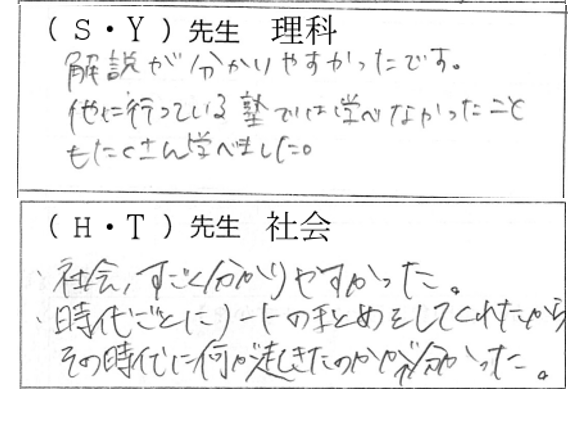 （S・Y）先生　理科
解説が分かりやすかったです。
他に行っている塾では学べなかったこと
もたくさん学べました。
（H・T）先生　社会
・社会、すごく分かりやすかった。
・時代ごとにノートのまとめをしてくれたから
その時代に何が起きたのかが分かった。